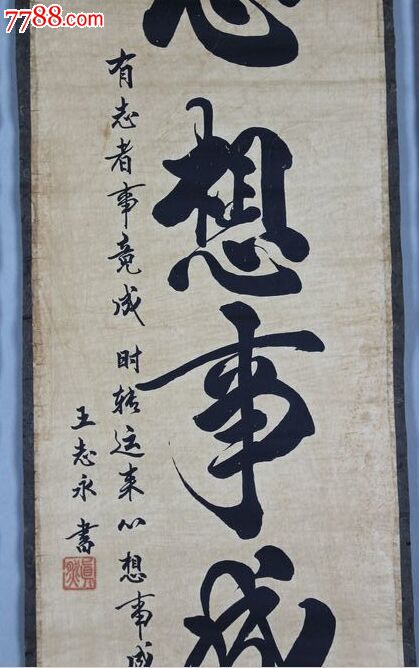 7788.com
心想事成
有志者事竟成 时转运来心想事成
王志永書